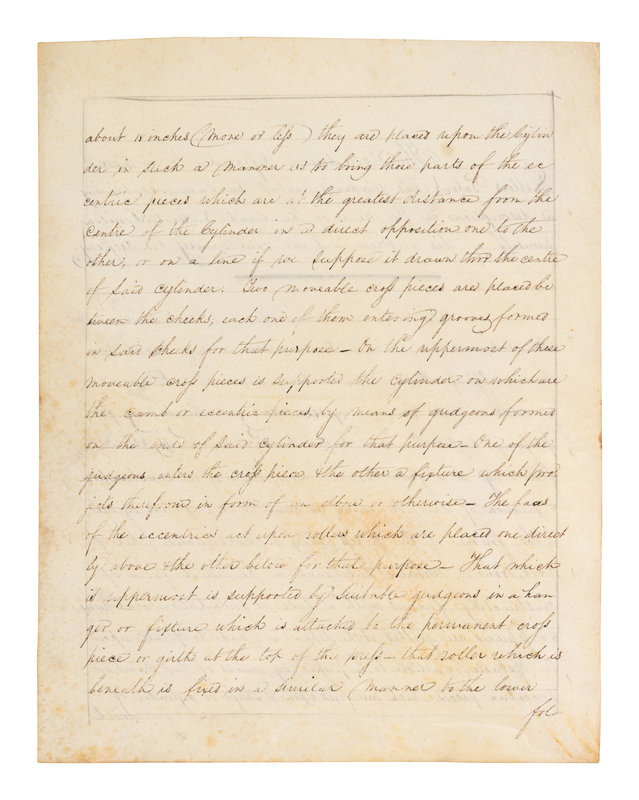 about 18 inches (more or less) they are placed upon the Cylin
der in such a manner as to bring those parts of the ec
centric pieces which are at the greatest distance from the
Centre of the Cylinder in a direct opposition one to the
other, or on a line if we suppose it drawn thro the centre
of said Cylinder. Two moveable cross pieces are placed be
tween the cheeks, each one of them entering grooves formed
in said Cheeks for that purpose – On the uppermost of these
moveable cross pieces is supported the Cylinder on which are
the camb or eccentric pieces, by means of gudgeons formed
on the ends of said cylinder for that purpose – One of the
gudgeons enters the cross piece & the other a fixture which pro
jects therefrom in form of an elbow or otherwise – The faces
of the eccentrics act upon rollers which are placed one direct
ly above & the other below for that purpose – That which
is uppermost is supported by suitable gudgeons in a han
ger or fixture which is attached to the permanent cross
piece or girth at the top of the press – that roller which is
beneath is fixed in a similar manner to the lower
fol